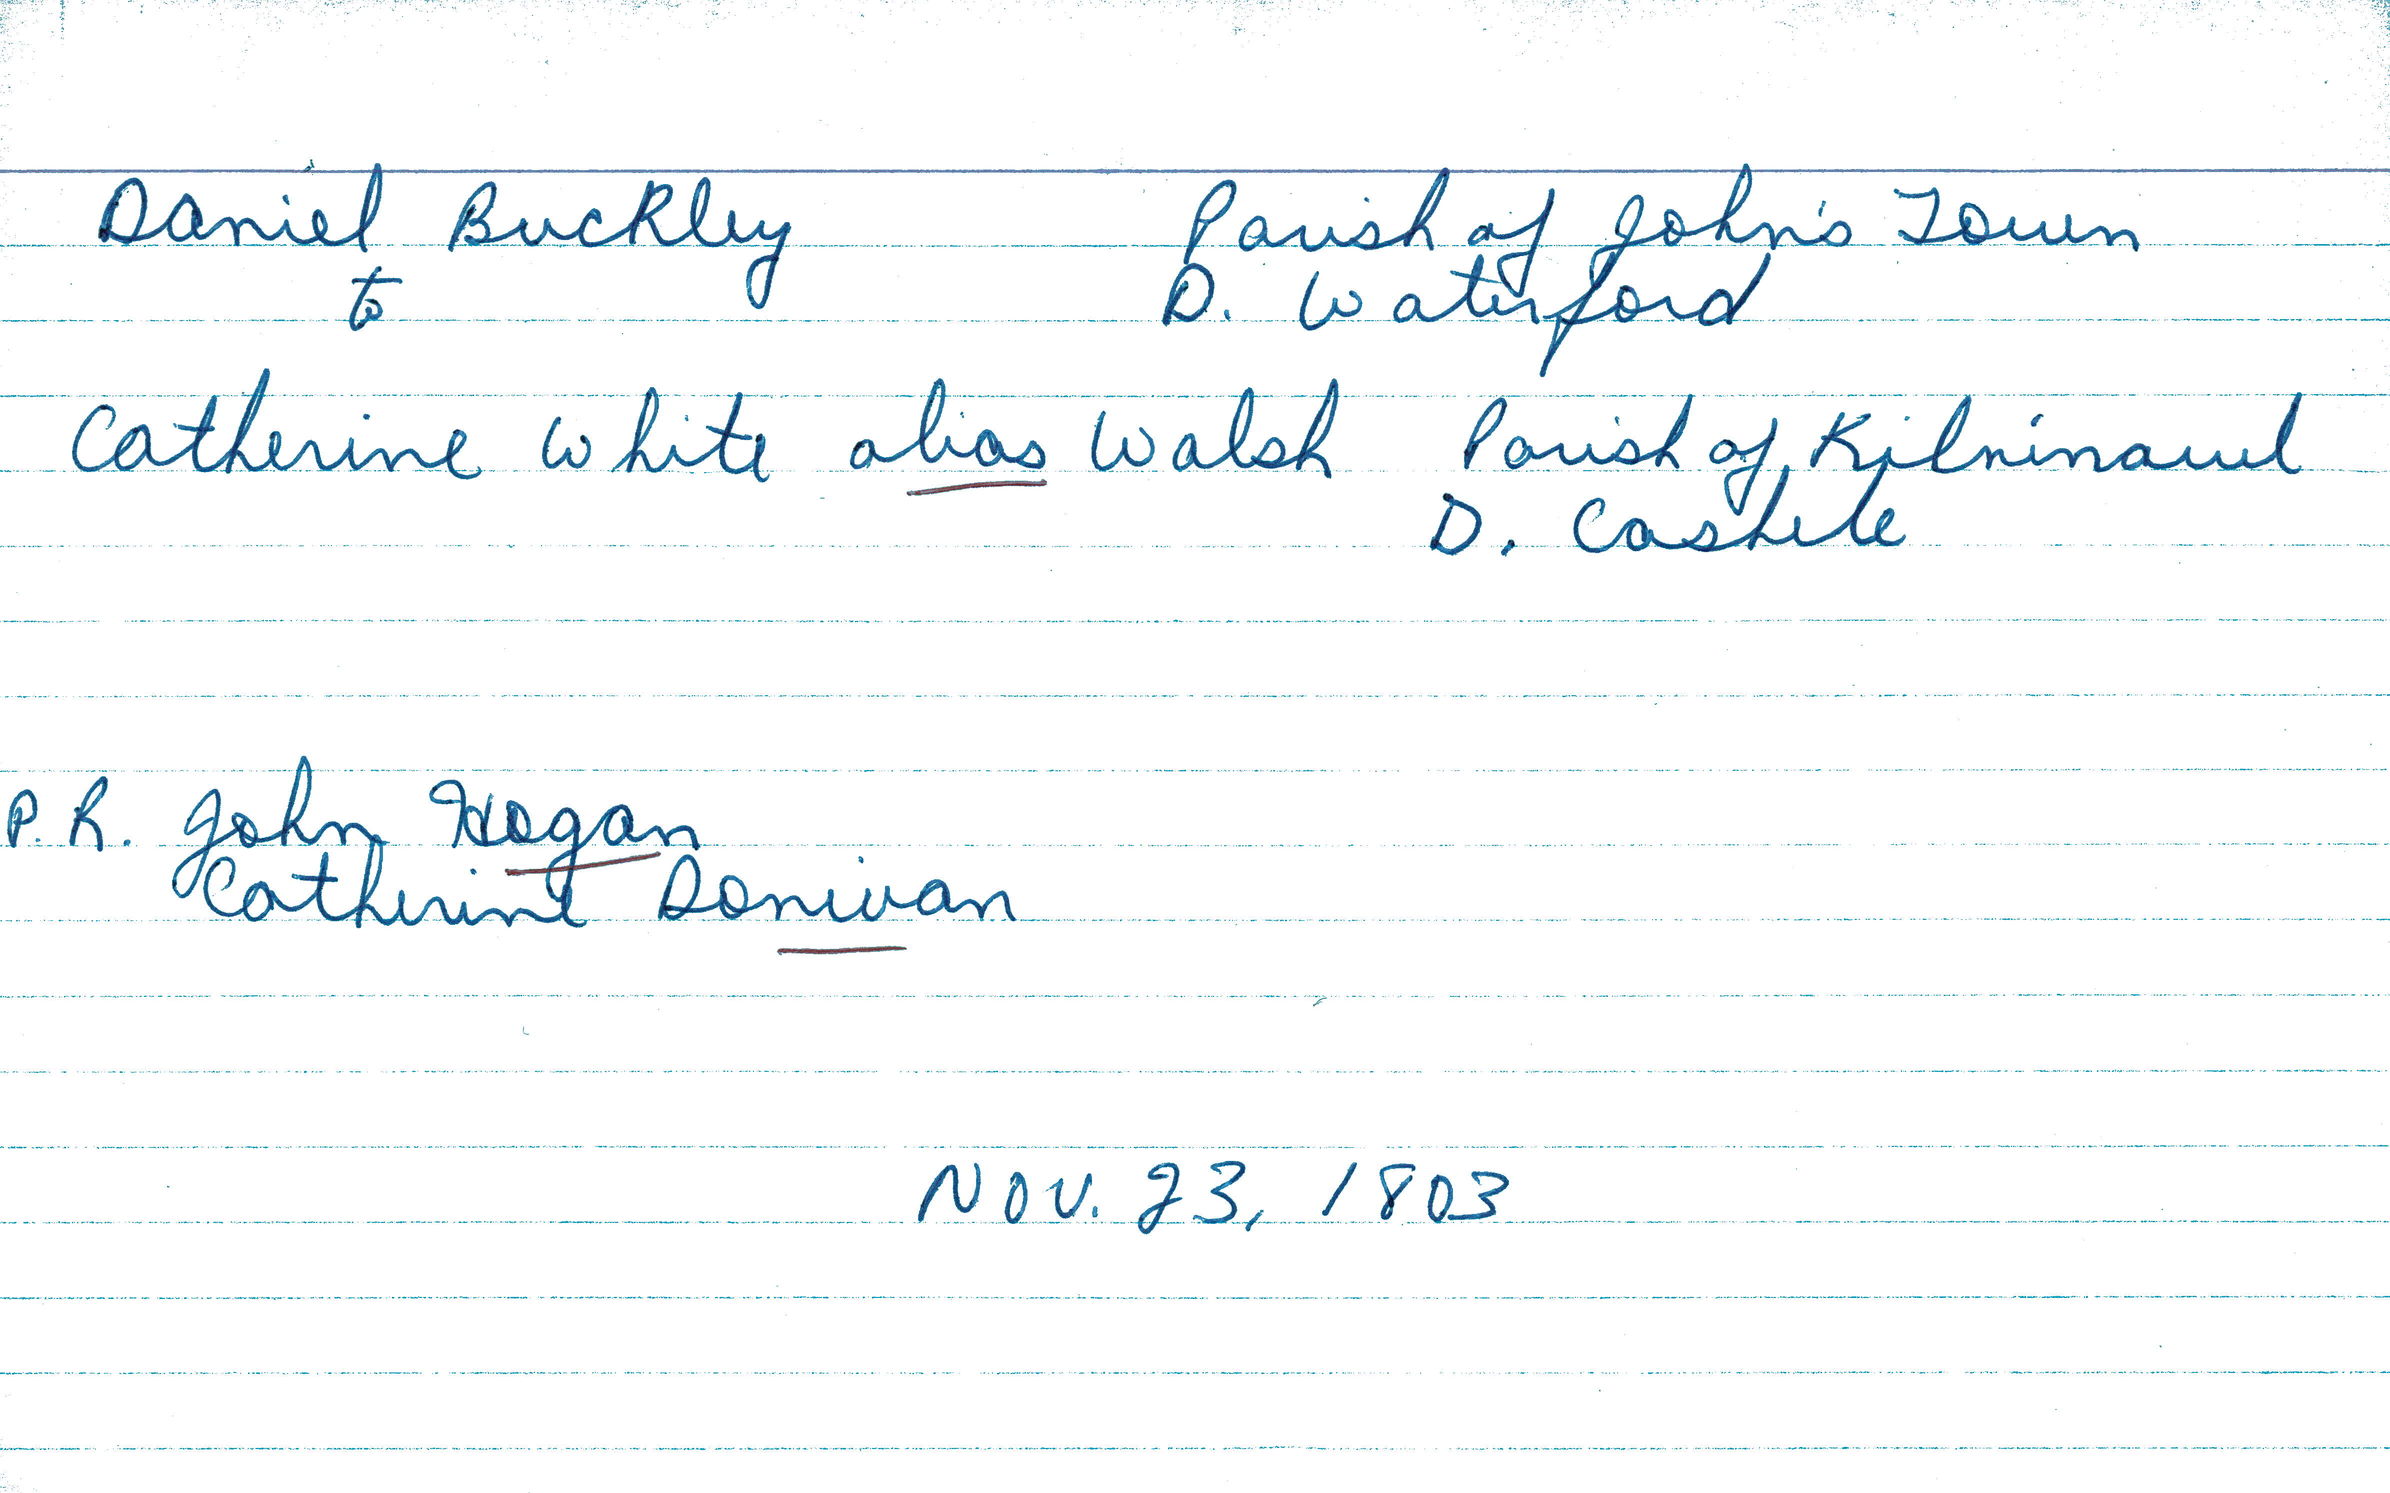 Daniel Buckley Parish of John's Town
to D. Waterford
Catherine White alias Walsh Parish of Kilninaul
D. Cashele
P.R. John Hogan
Catherine Donivan
Nov. 23, 1803